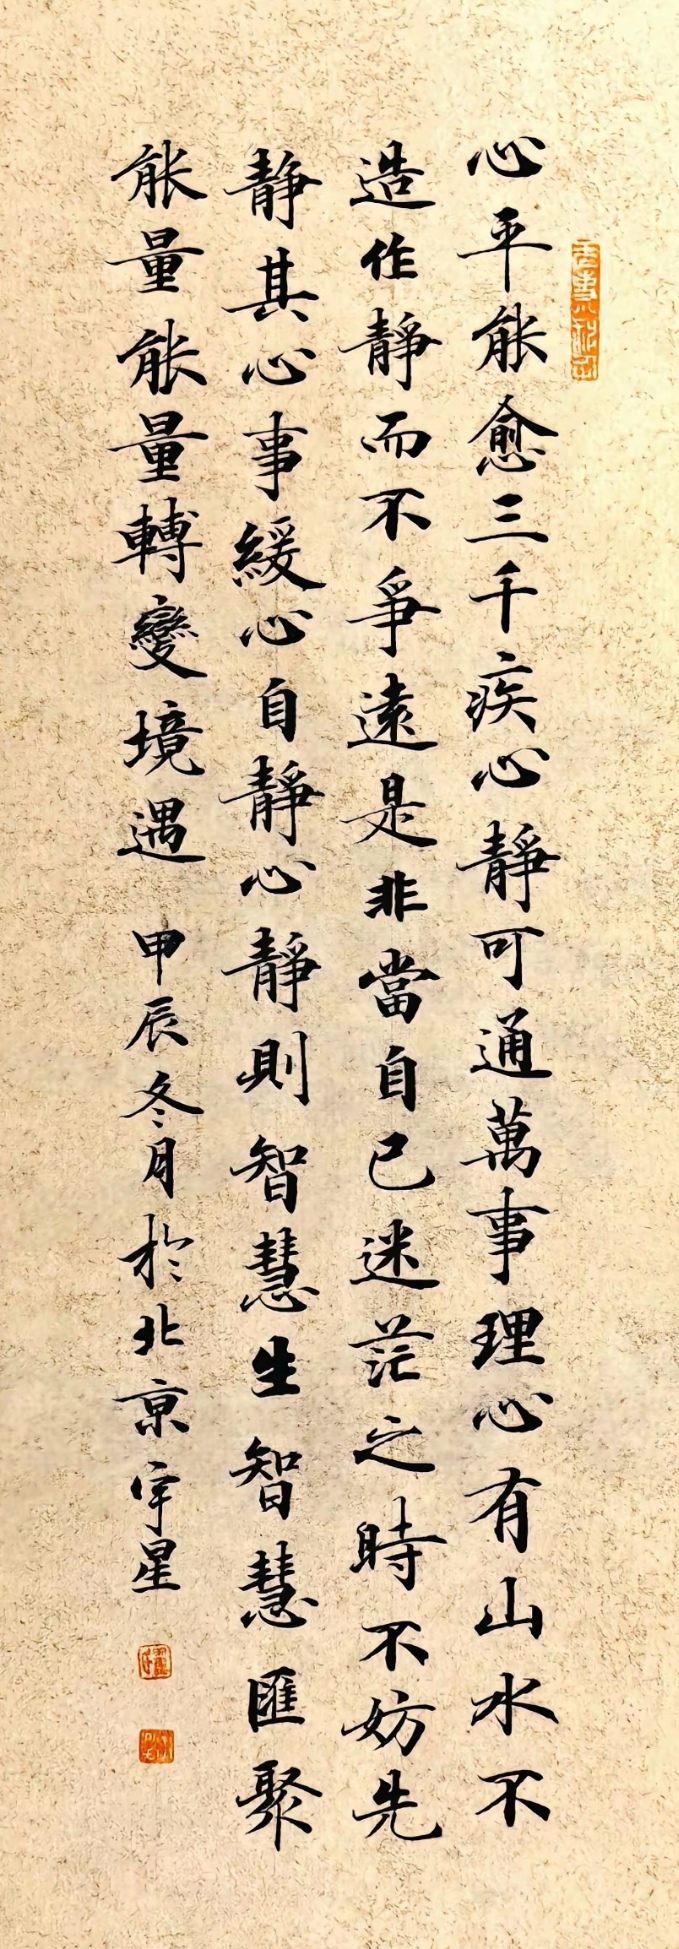 心平能愈三千疾心靜可通萬事理心有山水不
造作靜而不爭遠是非當自己迷茫之時不妨先
靜其心事緩心自靜心靜則智慧生智慧匯聚
能量能量轉變境遇 甲辰冬月於北京宇星